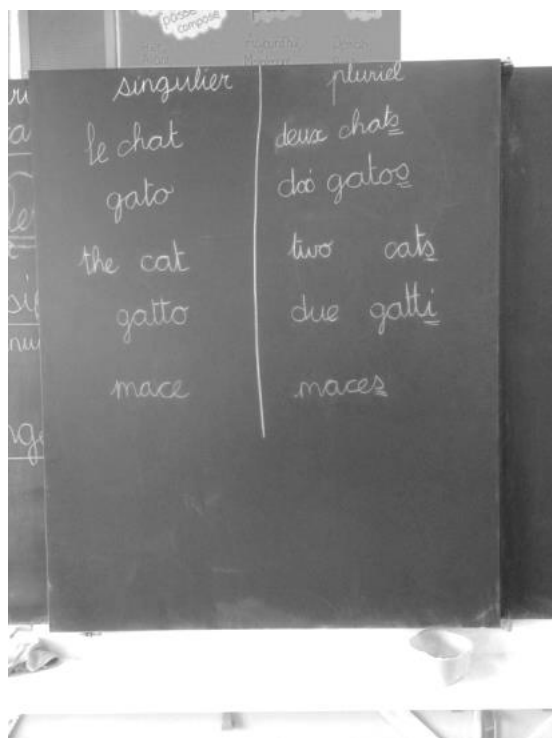 passé
composé
singulier pluriel
le chat deux chats
gato doó gatos
the cat two cats
gatto due gatti
mace maces